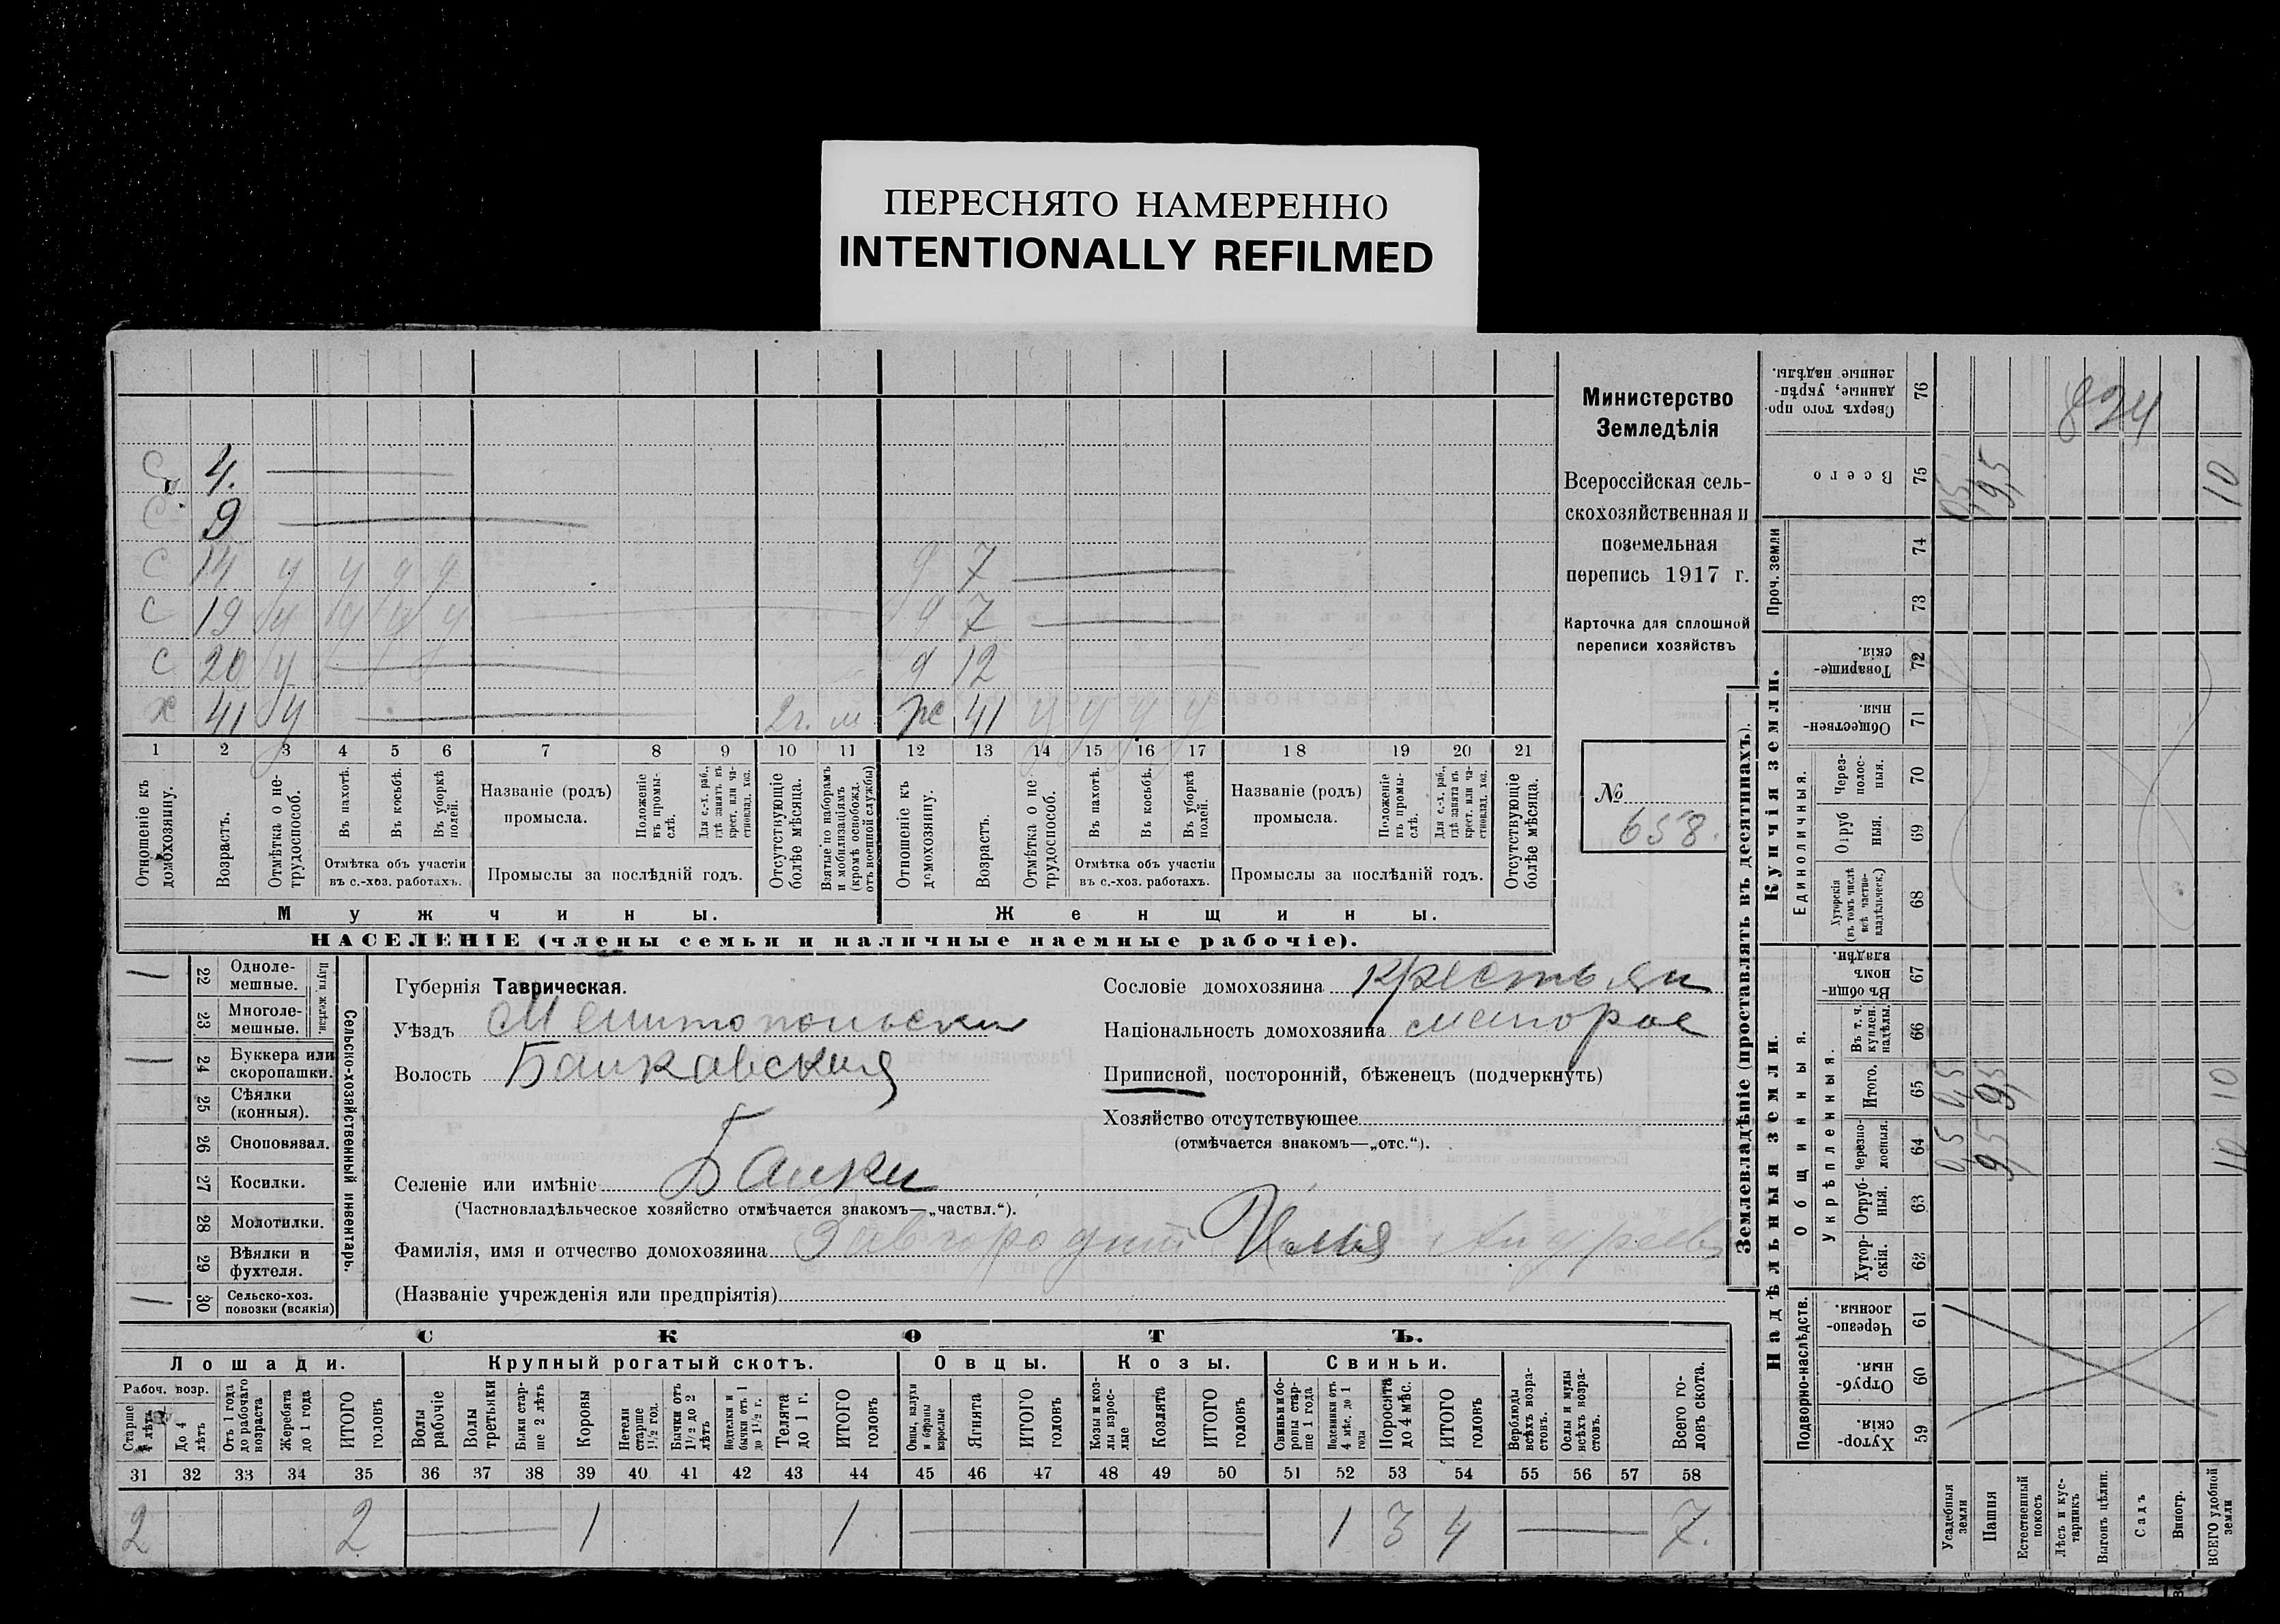 ПЕРЕСНЯТО НАМЕРЕННО
INTENTIONALLY REFILMED
С 4.
С 9
С 14 У У У У
Д 7
С 19 У У У У
Д 7
С 20 У
Д 12
Х 41 У
2г. м
Ж 41 У У У У
1 2 3 4 5 6 7 8 9 10 11 12 13 14 15 16 17 18 19 20 21
Отношеніе къ домохозяину.
Возрастъ.
Отмѣтка о не-трудоспособ.
Въ пахотѣ.
Въ косьбѣ.
Въ уборкѣ полей.
Отмѣтка объ участіи
въ с.-хоз. работахъ.
Названіе (родъ)
промысла.
Положеніе въ промы-слѣ.
Для с.-х. раб., гдѣ занятъ въ крест. или ча-стновлад. хоз.
Промыслы за послѣдній годъ.
Отсутствующіе болѣе мѣсяца.
Взятые по наборамъ и мобилизаціямъ (кромѣ освобожд. отъ военной службы)
Отношеніе къ домохозяину.
Возрастъ.
Отмѣтка о не-трудоспособ.
Въ пахотѣ.
Въ косьбѣ.
Въ уборкѣ полей.
Отмѣтка объ участіи
въ с.-хоз. работахъ.
Названіе (родъ)
промысла.
Положеніе въ промы-слѣ.
Для с.-х. раб., гдѣ занята въ крест. или ча-стновлад. хоз.
Промыслы за послѣдній годъ.
Отсутствующіе болѣе мѣсяца.
Мужчины.
Женщины.
НАСЕЛЕНІЕ (члены семьи и наличные наемные рабочіе).
Министерство
Земледѣлія
Всероссійская сель-
скохозяйственная и
поземельная
перепись 1917 г.
Карточка для сплошной
переписи хозяйствъ
№
658.
22 Одноле-мешные.
23 Многоле-мешные.
Плуги желѣзн.
24 Буккера или скоропашки.
25 Сѣялки (конныя).
26 Сноповязал.
27 Косилки.
28 Молотилки.
29 Вѣялки и фухтеля.
30 Сельско-хоз. повозки (всякія)
Сельско-хозяйственный инвентарь.
Губернія Таврическая.
Уѣздъ Мелитопольски
Волость Балковская
Селеніе или имѣніе Балки
(Частновладѣльческое хозяйство отмѣчается знакомъ—„частвл.“).
Фамилія, имя и отчество домохозяина Завгородний Илья Андреев
(Названіе учрежденія или предпріятія)
Сословіе домохозяина крестьян
Національность домохозяина малорос
Приписной, посторонній, бѣженецъ (подчеркнуть)
Хозяйство отсутствующее
(отмѣчается знакомъ—„отс.“).
СКОТЪ.
Лошади.
Крупный рогатый скотъ.
Овцы.
Козы.
Свиньи.
Рабоч. возр.
Старше 4 лѣтъ
До 4 лѣтъ
Отъ 1 года до рабочаго возраста
Жеребята до 1 года
ИТОГО головъ
Волы рабочіе
Волы третьяки
Быки стар-ше 2 лѣтъ
Коровы
Нетели старше 1½ год.
Бычки отъ 1½ до 2 лѣтъ
Подтелки и бычки отъ 1 до 1½ г.
Телята до 1 г.
ИТОГО головъ
Овцы, валухи и бараны взрослые
Ягнята
ИТОГО головъ
Козы и коз-лы взрос-лые
Козлята
ИТОГО головъ
Свиньи и бо-ровы стар-ше 1 года
Подсвинки отъ 4 мѣс. до 1 года
Поросята до 4 мѣс.
ИТОГО головъ
Верблюды всѣхъ возра-стовъ.
Ослы и мулы всѣхъ возра-стовъ.
Всего го-ловъ скота.
31 32 33 34 35 36 37 38 39 40 41 42 43 44 45 46 47 48 49 50 51 52 53 54 55 56 57 58
2 2 1 1 1 3 4 7.
Землевладѣніе (проставлять въ десятинахъ).
Сверхъ того про-данные, укрѣп-ленные надѣлы. 76
824
Всего 75 0,5 9,5 10
Проч. земли 74
73
Купчія земли.
Товарище-скія. 72
Обществен-ныя. 71
Единоличныя.
Через-полос-ныя. 70
Отруб ныя. 69
Хуторскія (въ томъ числѣ всѣ частно-владѣльческ.) 68
Надѣльныя земли.
Общинныя.
Въ общи-номъ владѣн. 67
Укрѣпленныя.
Въ т. ч. куплен. надѣлы. 66
Итого. 65 0,5 9,5 10
Черезпо-лосныя. 64 0,5 9,5 10
Отруб-ныя. 63
Хутор-скія. 62
Подворно-наслѣдств.
Черезпо-лосныя 61
Отруб-ныя. 60
Хутор-скія. 59
Усадебныя земли
Пашня
Естественный покосъ
Лѣсъ и кус-тарникъ
Выгонъ цѣлин.
Садъ
Виногр.
ВСЕГО удобной земли